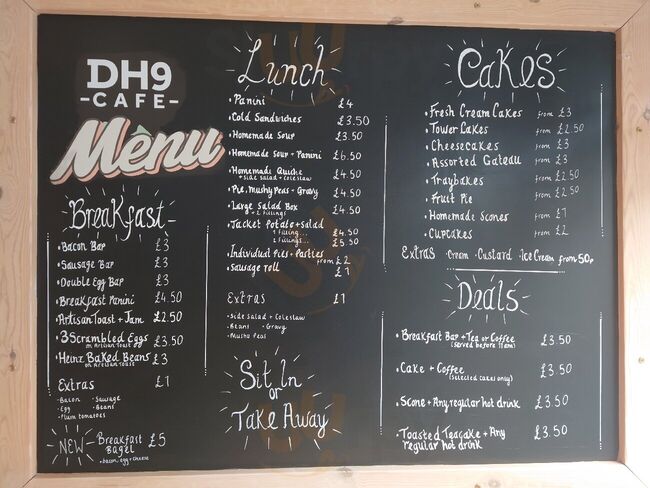 DH9
-CAFE-
Mènu
Breakfast
• Bacon Bap £3
• Sausage Bap £3
• Double Egg Bap £3
• Breakfast Panini £4.50
• Artisan Toast + Jam £2.50
• 3 Scrambled Eggs £3.50
on Artisan Toast
• Heinz Baked Beans £3
on Artisan Toast
Extras £1
• Bacon • Sausage
• Egg • Beans
• Plum tomatoes
NEW Breakfast £5
Bagel
• bacon, egg + cheese
Lunch
• Panini £4
• Cold Sandwiches £3.50
• Homemade Soup £3.50
• Homemade Soup + Panini £6.50
• Homemade Quiche £4.50
+ side salad + coleslaw
• Pie, Mushy Peas + Gravy £4.50
• Large Salad Box £4.50
+ 2 fillings
• Jacket Potato + Salad
1 filling... £4.50
2 fillings... £5.50
• Individual Pies + Pasties from £2
• Sausage roll £1
Extras £1
• Side salad • Coleslaw
• Beans • Gravy
• Mushy Peas
Sit In
or
Take Away
Cakes
• Fresh Cream Cakes from £3
• Tower Cakes from £2.50
• Cheesecakes from £3
• Assorted Gateau from £3
• Traybakes from £2.50
• Fruit Pie from £2.50
• Homemade Scones from £1
• Cupcakes from £2
Extras • Cream • Custard • Ice Cream from 50p
Deals
• Breakfast Bap + Tea or Coffee £3.50
(served before 11am)
• Cake + Coffee £3.50
(selected cakes only)
• Scone + Any regular hot drink £3.50
• Toasted Teacake + Any £3.50
regular hot drink